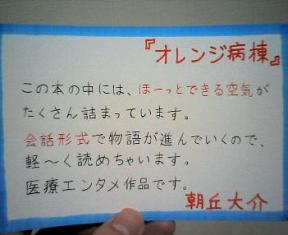 『オレンジ病棟』
この本の中には、ほーっとできる空気が
たくさん詰まっています。
会話形式で物語が進んでいくので、
軽〜く読めちゃいます。
医療エンタメ作品です。
朝丘大介